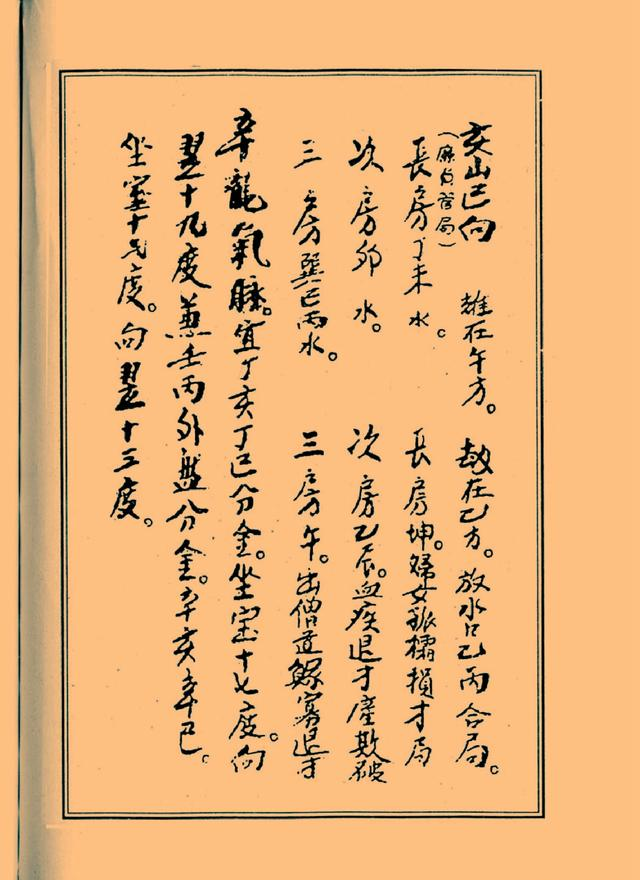 亥山巳向　雄在午方。劫在乙方。放水口乙丙合局。
（廉貞登局）
長房丁未水。　長房坤。婦女損才局
次房卯水。　次房乙辰。血疾退才產欺破
三房巽巳丙水。　三房午。出僧道鰥寡退才
辛龍氣脉。宜丁亥丁巳分金。坐室十七度。向
翌十九度兼壬丙外盤分金。辛亥辛巳。
坐室十七度。向翌十三度。